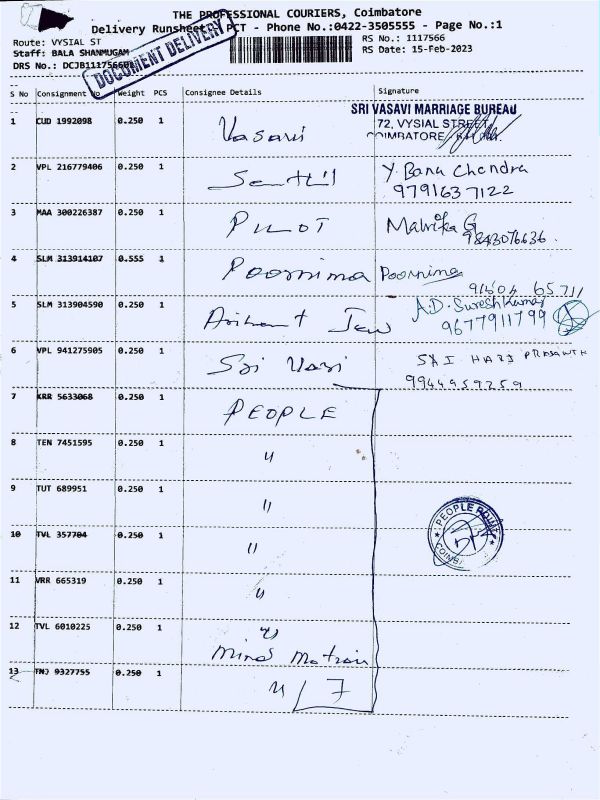 THE PROFESSIONAL COURIERS, Coimbatore
Delivery Runsheet PCT - Phone No.:0422-3505555 - Page No.:1
Route: VYSIAL ST
RS No.: 1117566
Staff: BALA SHANMUGAM
RS Date: 15-Feb-2023
DRS No.: DCJB1117566
DOCUMENT DELIVERY
S No Consignment No Weight PCS Consignee Details Signature
SRI VASAVI MARRIAGE BUREAU
1 CUD 1992098 0.250 1 Vasavi 72, VYSIAL STREET,
COIMBATORE
2 VPL 216779406 0.250 1 Senthil Y. Banu Chendra
9791637122
3 MAA 300226387 0.250 1 PILOT Malvika G
9843076636.
4 SLM 313914107 0.555 1 Poornima Poornima
91504 65711
5 SLM 313904590 0.250 1 Arihant Jew A.D. SureshKumar
9677911799
6 VPL 941275905 0.250 1 Sri Vari SRI HARI PRASANTH
9944959259
7 KRR 5633068 0.250 1 PEOPLE
8 TEN 7451595 0.250 1 "
9 TUT 689951 0.250 1 "
PEOPLE POINT
10 TVL 357704 0.250 1 "
11 VRR 665319 0.250 1 "
12 TVL 6010225 0.250 1 "
Mind Matrix
13 TNJ 9327755 0.250 1 " / 7